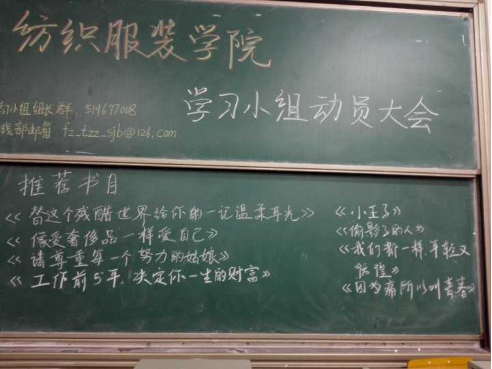 纺织服装学院
学习小组动员大会
习小组组长群 519677008
践部邮箱 fz_tzz_sjb@126.com
推荐书目
《替这个残酷世界给你的一记温柔耳光》
《像爱奢侈品一样爱自己》
《请尊重每一个努力的姑娘》
《工作前5年,决定你一生的财富》
《小王子》
《偷影子的人》
《我们都一样年轻又
彷徨》
《因为痛所以叫青春》